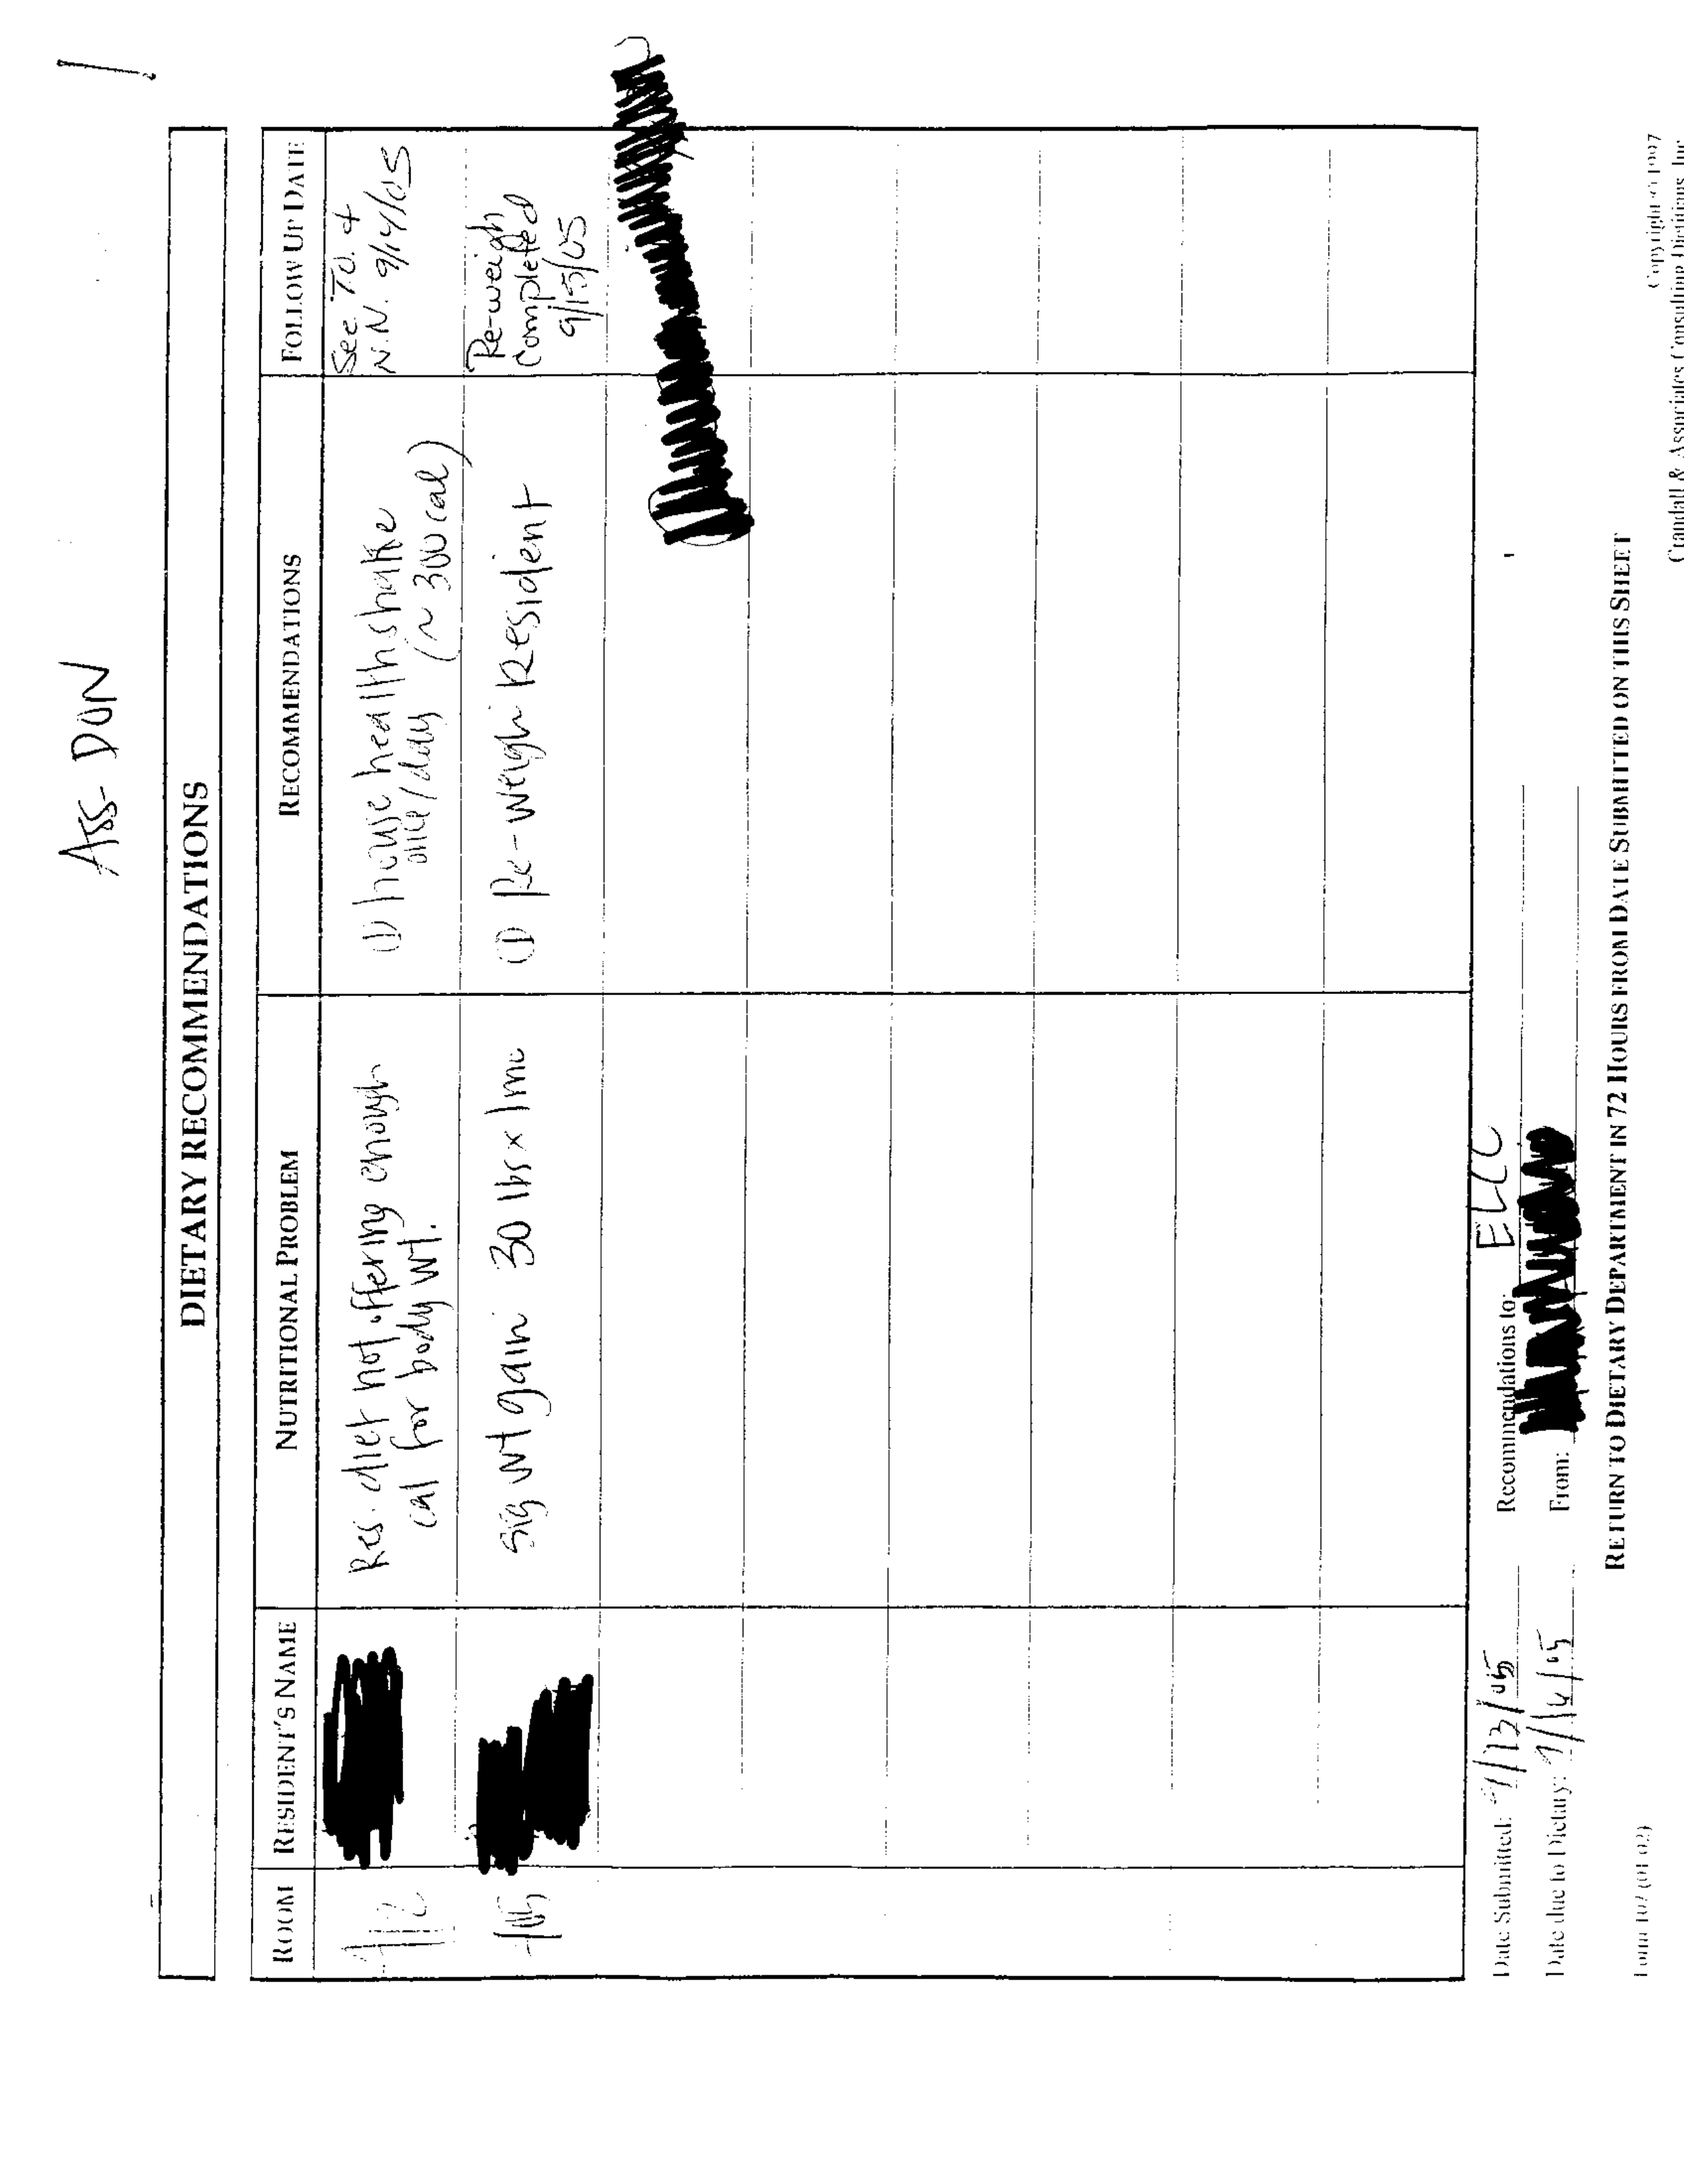 Ass- DON
DIETARY RECOMMENDATIONS
ROOM RESIDENT'S NAME NUTRITIONAL PROBLEM RECOMMENDATIONS FOLLOW UP DATE
Res. diet not offering enough
cal for body wt.
① house health shake
once/day (~ 300 cal)
See T.O. +
N.N. 9/14/05
sig wt gain 30 lbs x 1mo
① Re-weigh Resident
Re-weigh
Completed
9/15/05
Date Submitted: 9/13/05 Recommendations to: ELCC
Date due to Dietary: 9/16/05 From:
RETURN TO DIETARY DEPARTMENT IN 72 HOURS FROM DATE SUBMITTED ON THIS SHEET
Copyright © 1997
Crandall & Associates Consulting Dietitians, Inc.